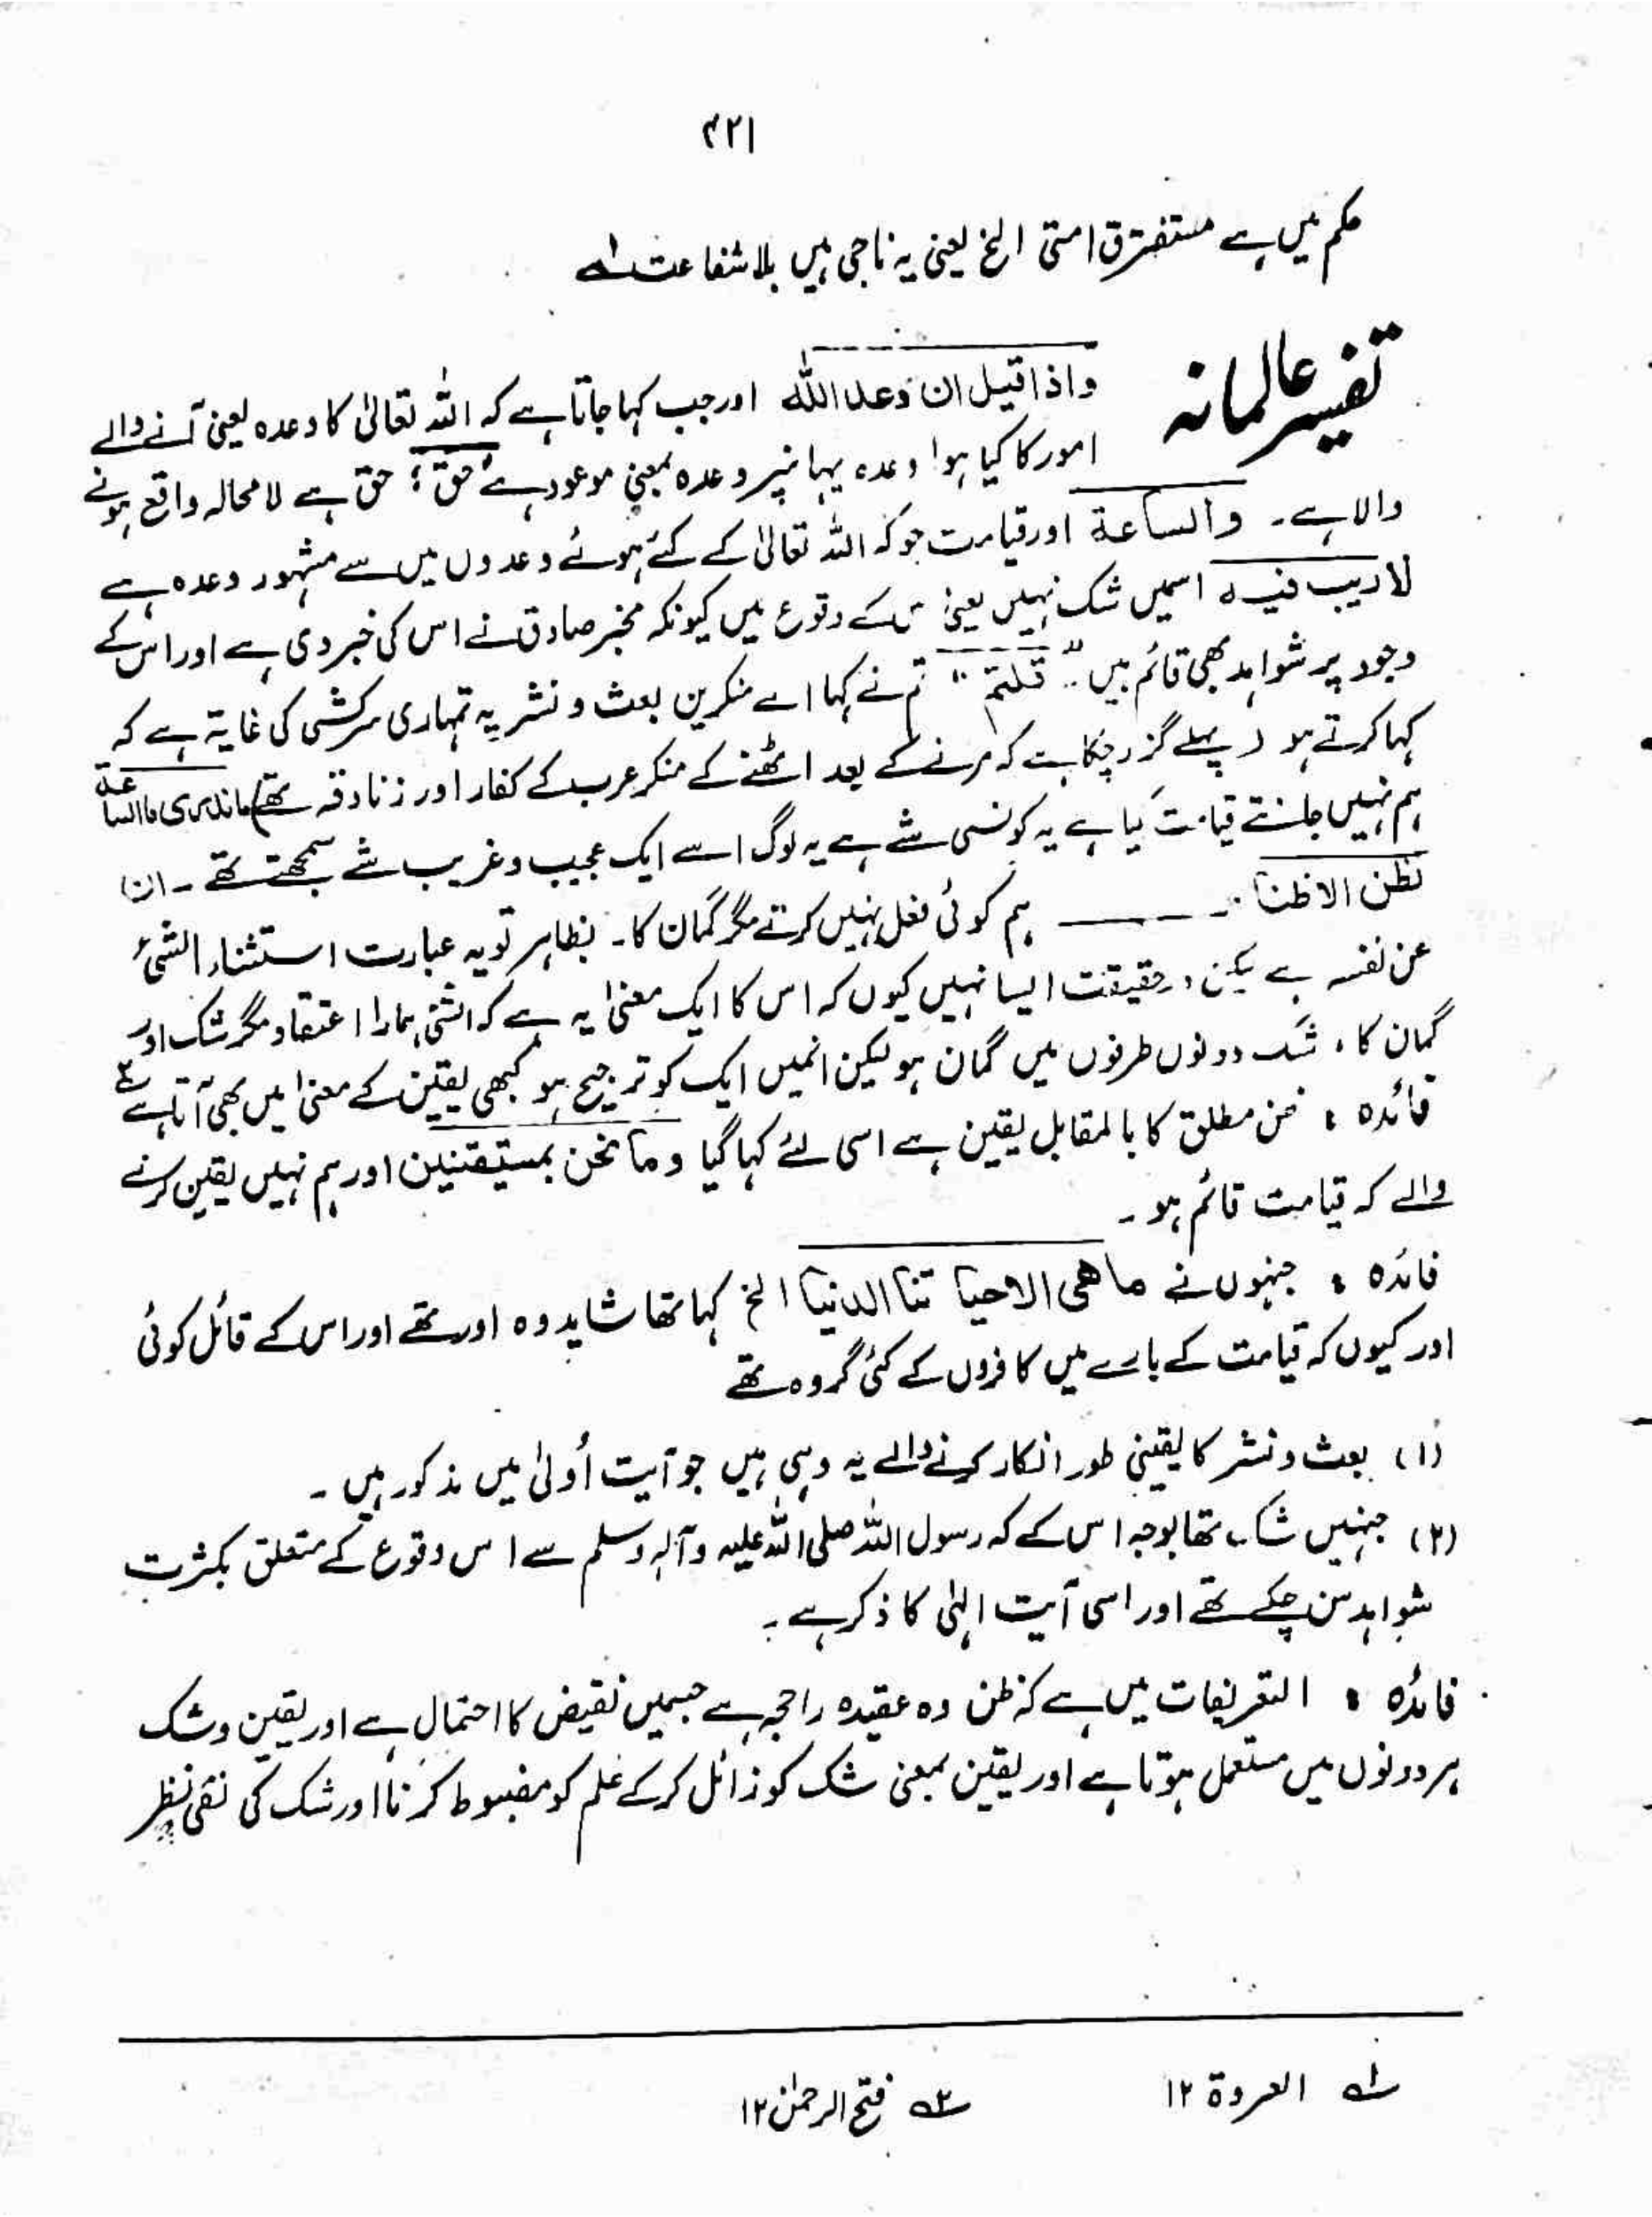 ۴۲۱
حکم میں ہے ستفترق امتی الخ یعنی یہ ناجی ہیں بلا شفاعت لہ
تفسیر عالمانہ
واذا قیل ان وعد اللہ اور جب کہا جاتا ہے کہ اللہ تعالیٰ کا وعدہ یعنی آنے والے
امور کا کیا ہوا وعدہ یہاں پر وعدہ بمعنی موعود ہے حق ؛ حق ہے لا محالہ واقع ہونے
والا ہے۔ والساعة اور قیامت جو کہ اللہ تعالیٰ کے کئے ہوئے وعدوں میں سے مشہور وعدہ ہے
لا ریب فیہ اسمیں شک نہیں یعنی اس کے وقوع میں کیونکہ مخبر صادق نے اس کی خبر دی ہے اور اس کے
وجود پر شواہد بھی قائم ہیں۔ "قلتم" تم نے کہا اے منکرین بعث و نشر یہ تمہاری سرکشی کی غایۃ ہے کہ
کہا کرتے ہو ( پہلے گزر چکا ہے کہ مرنے کے بعد اٹھنے کے منکر عرب کے کفار اور زنادقہ تھے) ماندری ما الساعة
ہم نہیں جانتے قیامت کیا ہے یہ کونسی شے ہے یہ لوگ اسے ایک عجیب و غریب شے سمجھتے تھے ۔ ان
نظن الا ظنا ۔ ہم کوئی فعل نہیں کرتے مگر گمان کا۔ بظاہر تو یہ عبارت استثناء الشئ
عن نفسہ ہے لیکن درحقیقت ایسا نہیں کیوں کہ اس کا ایک معنیٰ یہ ہے کہ انشئی ہمارا اعتقاد مگر شک اور
گمان کا ، شک دونوں طرفوں میں گمان ہو لیکن انمیں ایک کو ترجیح ہو کبھی یقین کے معنیٰ میں بھی آتا ہے ۲
فائدہ : ظن مطلق کا بالمقابل یقین ہے اسی لئے کہا گیا وما نحن بمستیقنین اور ہم نہیں یقین کرنے
والے کہ قیامت قائم ہو ۔
فائدہ : جنہوں نے ما ھی الا حیا تنا الدنیا الخ کہا تھا شاید وہ اور تھے اور اس کے قائل کوئی
اور کیوں کہ قیامت کے بارے میں کافروں کے کئی گروہ تھے
(۱) بعث و نشر کا یقینی طور انکار کرنے والے یہ وہی ہیں جو آیت اُولیٰ میں مذکور ہیں ۔
(۲) جنہیں شک تھا بوجہ اس کے کہ رسول اللہ صلی اللہ علیہ وآلہ وسلم سے اس وقوع کے متعلق بکثرت
شواہد سن چکے تھے اور اسی آیت الہٰی کا ذکر ہے ۔
فائدہ : التعریفات میں ہے کہ ظن وہ عقیدہ راجحہ ہے جسمیں نقیض کا احتمال ہے اور یقین و شک
ہر دونوں میں مستعمل ہوتا ہے اور یقین بمعنی شک کو زائل کرکے علم کو مضبوط کرنا اور شک کی نفی نظر
لہ العروۃ ۱۲
۲ہ فتح الرحمٰن ۱۲